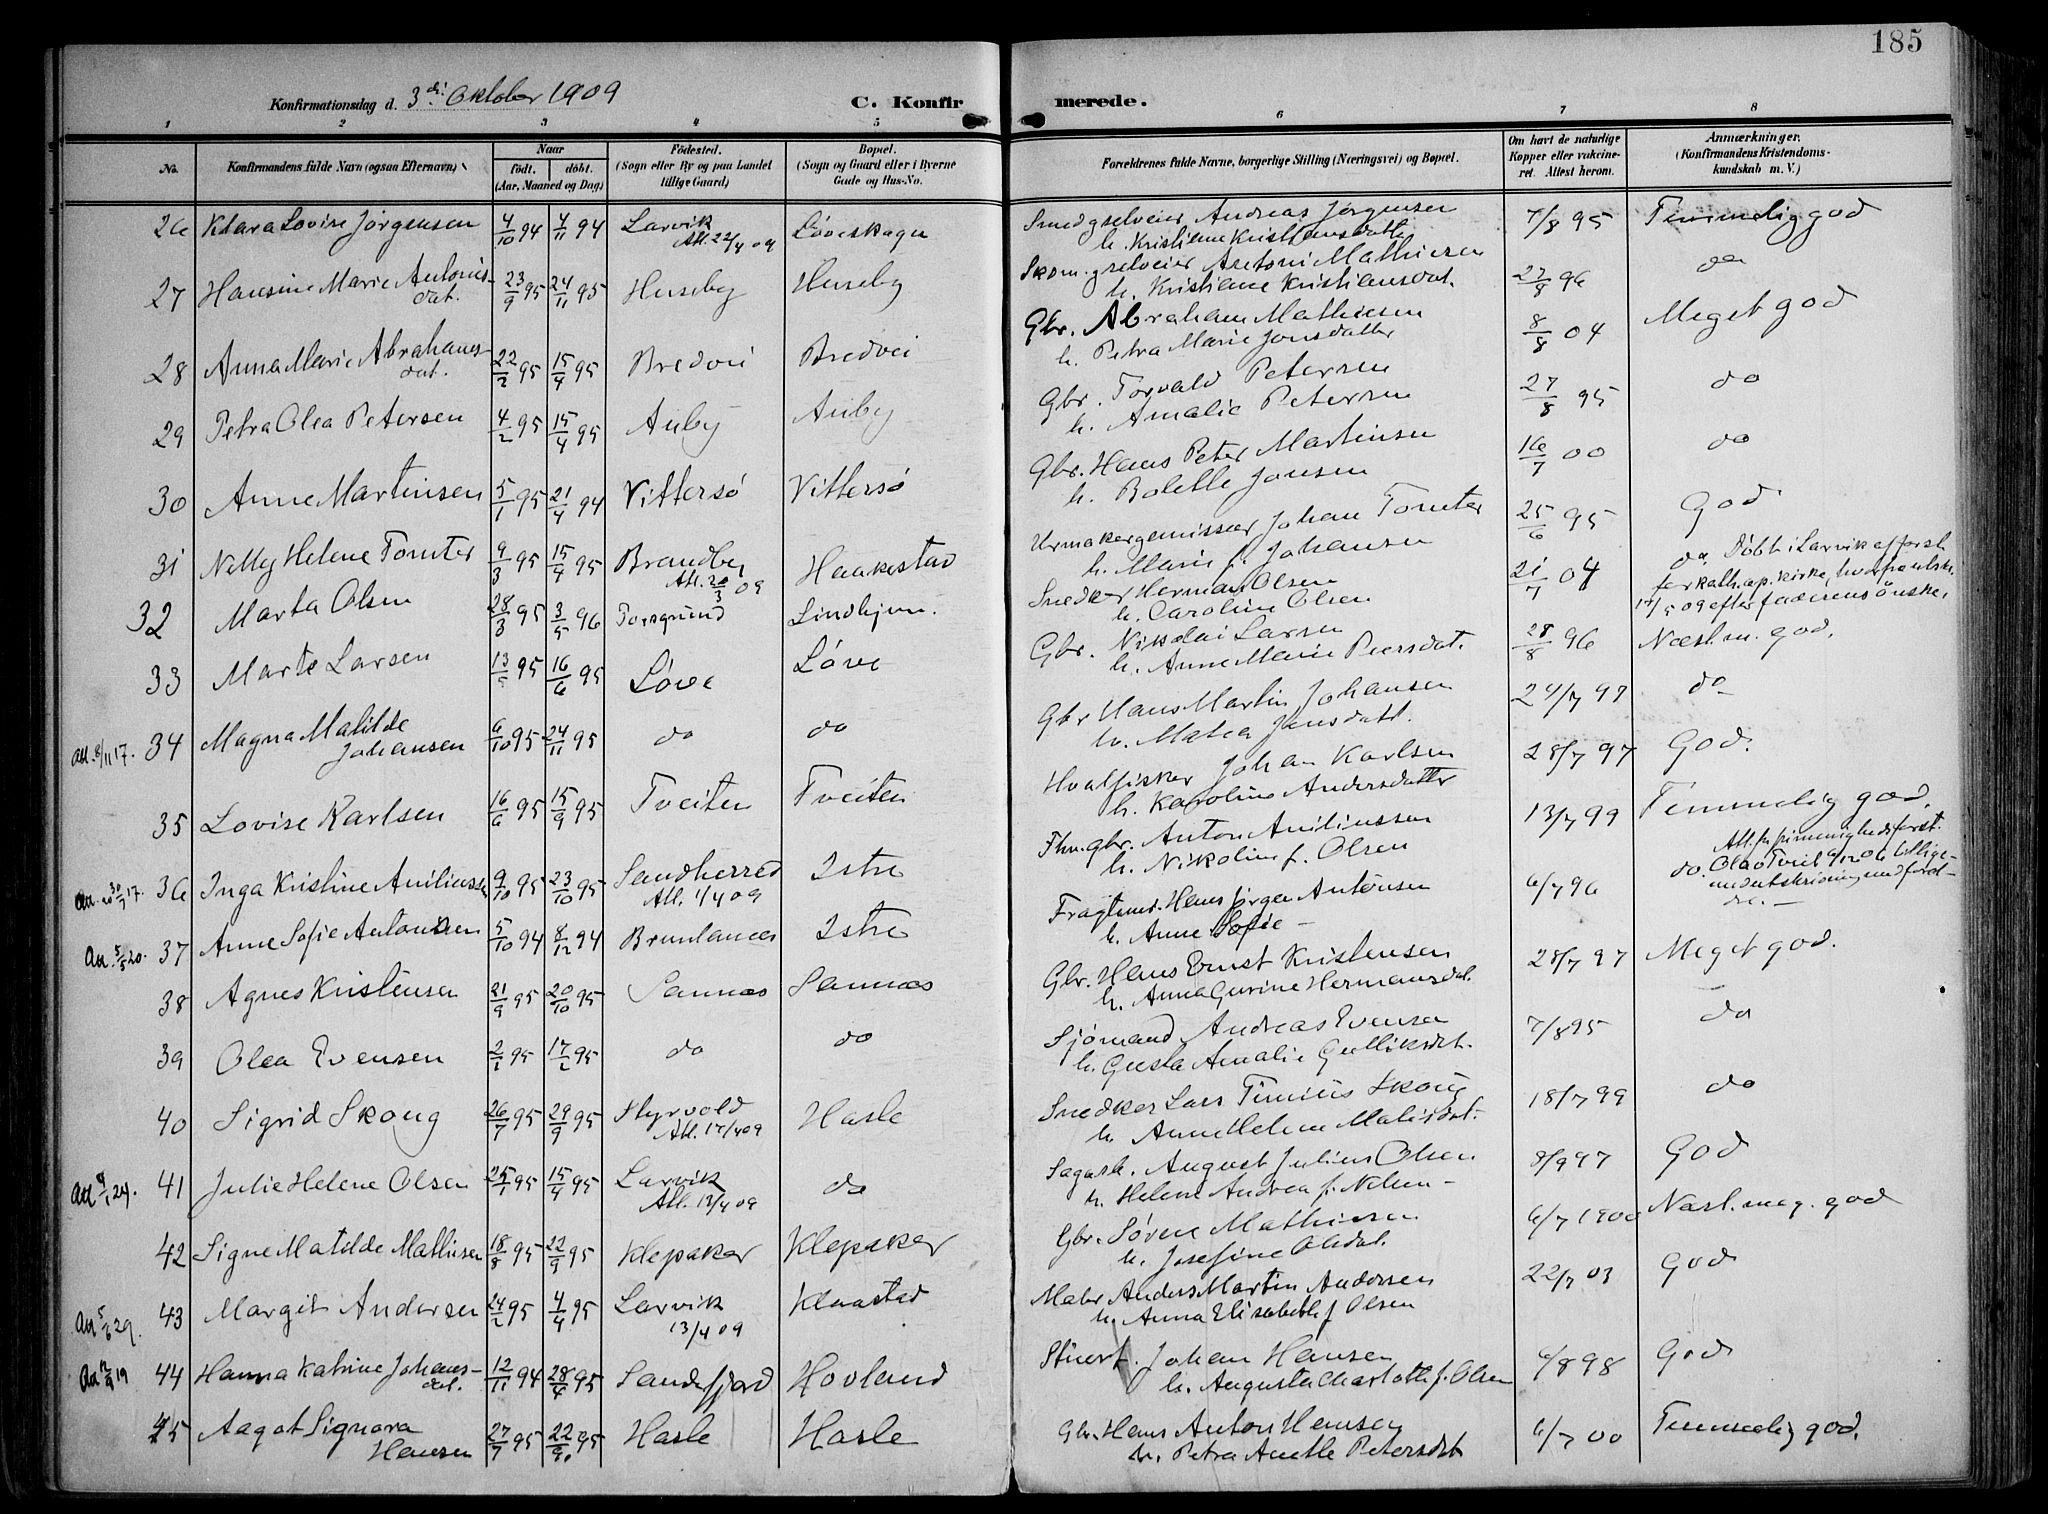 185
Konfirmationsdag d. 3di Oktober 1909
C. Konfirmerede.
1 2 3 4 5 6 7 8
No. Konfirmandens fulde Navn (ogsaa Efternavn) Naar født. døbt. (Aar, Maaned og Dag) Fødested. (Sogn eller By og paa Landet tillige Gaard) Bopæl. (Sogn og Gaard eller i Byerne Gade og Hus-No. Forældrenes fulde Navne, borgerlige Stilling (Næringsvei) og Bopæl. Om havt de naturlige Kopper eller vakcineret. Attest herom. Anmærkninger. (Konfirmandens Kristendomskundskab m. V.)
26 Klara Lovise Jørgensen 4/10 94 4/11 94 Larvik Att. 22/4 09 Løveskogen Smed gselveier Andreas Jørgensen h. Kristiane Kristiansdatter 7/8 95 Temmelig god
27 Hansine Marie Antonisdat. 23/9 95 24/11 95 Huseby Huseby Skom. gselveier Antoni Mathiesen h. Kristiane Kristiansdat. 27/8 96 do
28 Anna Marie Abrahamsdat. 22/2 95 15/4 95 Bredvei Bredvei Gbr. Abraham Mathiesen h. Petra Marie Jonsdatter 8/8 04 Meget god
29 Petra Olea Petersen 4/2 95 15/4 95 Auby Auby Gbr. Torvald Petersen h. Amalie Petersen 27/8 95 do
30 Anne Martinsen 5/1 95 21/4 94 Vittersø Vittersø Gbr. Hans Peter Martinsen h. Bolette Jonsen 16/7 00 do
31 Nelly Helene Tomter 9/3 95 15/4 95 Brandby Att. 20/3 09 Haakestad Urmakergemissær Johan Tomter h. Marie f. Johansen 25/6 95 God
32 Marta Olsen 28/3 95 3/5 96 Porsgrund Lindhjem. Snedker Herman Olsen h. Caroline Olsen 21/7 04 do Døbt i Larvik af forst. for kath. ap. kirke, 17/5 09 efter faderens ønske.
33 Marte Larsen 13/5 95 16/6 95 Løve Løve Gbr. Nikolai Larsen h. Anne Marie Peersdat. 28/8 96 Næst m. god.
Att. 8/11 17. 34 Magna Matilde Johansen 6/10 95 24/11 95 do do Gbr Hans Martin Johansen h. Matea Jansdatt. 24/7 97 do
35 Lovise Karlsen 16/6 95 15/9 95 Tveiten Tveiten Hvalfisker Johan Karlsen h. Karoline Andersdatter 28/7 97 God.
Att. 30/7 17. 36 Inga Kristine Aniliussen 9/10 95 23/10 95 Sandherred Att. 1/4 09 Istre Fhv. gbr. Anton Aniliussen h. Nikoline f. Olsen 13/7 99 Temmelig god.
Att. 5/5 20. 37 Anne Sofie Antonsen 5/10 94 8/12 94 Brunlanæs Istre Fragtmd. Hans Jørgen Antonsen h. Anne Sofie — 6/7 96 do.
38 Agnes Kristensen 21/9 95 20/10 95 Sannæs Sannæs Gbr. Hans Ernst Kristensen h. Anna Gurine Hermansdat. 28/7 97 Meget god.
39 Olea Evensen 2/1 95 17/2 95 do do Sjømand Andreas Evensen h. Gusta Amalie Gulliksdat. 7/8 95 do
40 Sigrid Skoug 26/7 95 29/9 95 Styrvold Att. 17/4 09 Hasle Snedker Lars Tinius Skoug h. Anne Helene Matisdat. 18/7 99 do
Att 9/1 24. 41 Julie Helene Olsen 25/1 95 15/4 95 Larvik Att. 13/4 09 do Sagarb. August Julius Olsen h. Helene Andrea f. Nilsen — 8/9 97 God
42 Signe Matilde Mathisen 18/8 95 22/9 95 Klepaker Klepaker Gbr. Søren Mathisen h. Josefine Olsdat. 6/7 1900 Næst. meg. god
Att 5/6 29. 43 Margit Andersen 24/2 95 4/4 95 Larvik 13/4 09 Klaastad Maler Anders Martin Andersen h. Anna Elisabeth f Olsen 22/7 03 God
Att 12/9 19 44 Hanna Katrine Johansdat. 12/11 94 28/4 95 Sandefjord Hovland Stuert. Johan Hansen h. Augusta Charlotte f. Olsen 6/8 98 God
45 Aagot Signora Hansen 27/7 95 22/9 95 Hasle Hasle Gbr. Hans Anton Hansen h. Petra Anette Petersdat 6/7 00 Temmelig god.